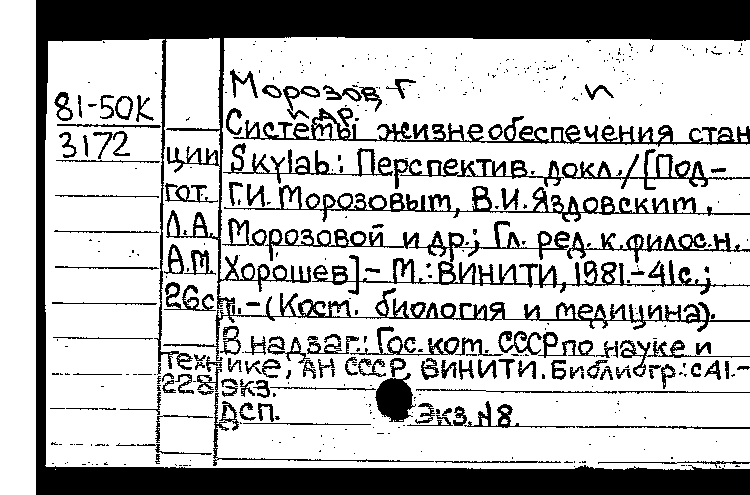 Морозов Г п
и др.
81-50К Системы жизнеобеспечения стан
3172 ции Skylab: Перспектив. докл./[Под-
гот. Г.И. Морозовым, В.И. Яздовским,
Л.А. Морозовой и др.; Гл. ред. к.филос.н.
А.М. Хорошев].- М.: ВИНИТИ, 1981.-41с.;
26см.-(Косм. биология и медицина).
В надзаг.: Гос. ком. СССР по науке и
технике, АН СССР, ВИНИТИ. Библиогр.: с41.-
228 экз.
ДСП. Экз.№8.